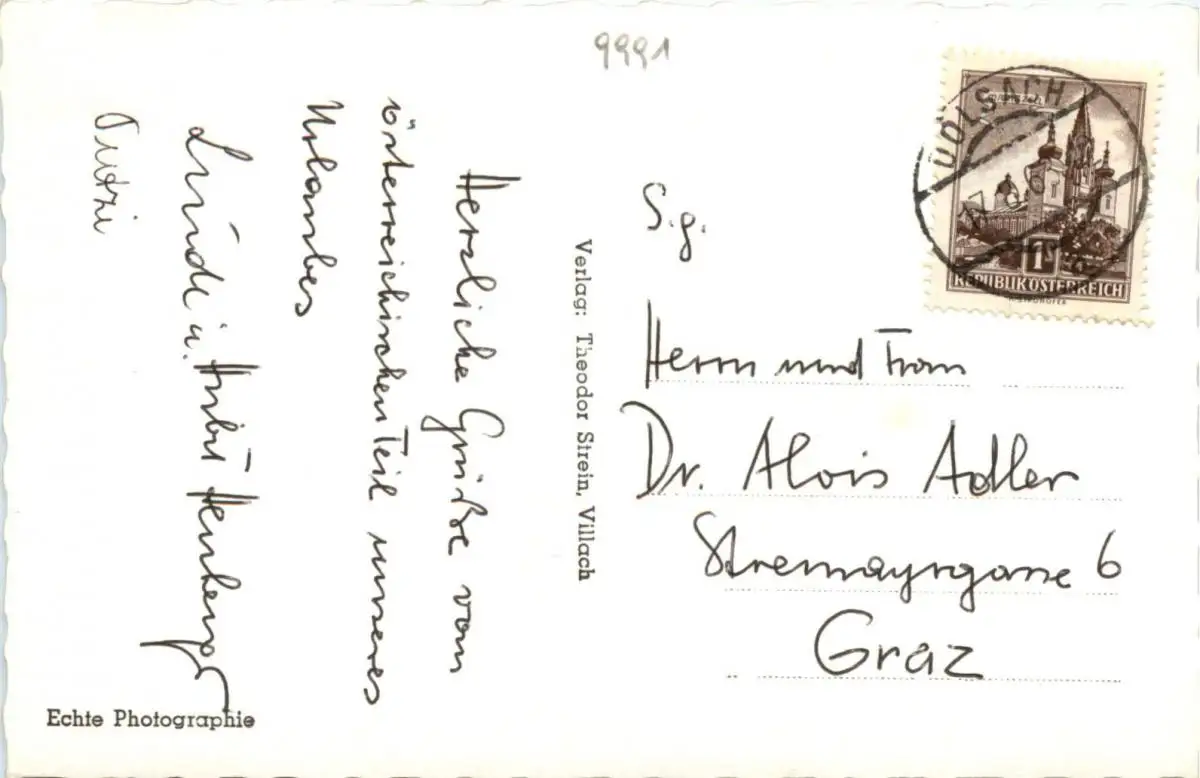 9991
Herzliche Grüße vom
österreichischen Teil unseres
Urlaubes
u. Herbert
Echte Photographie
Verlag: Theodor Strein, Villach
S.g.
Herrn und Frau
Dr. Alois Adler
Stremayrgasse 6
Graz
DÖLSACH
1
REPUBLIK ÖSTERREICH